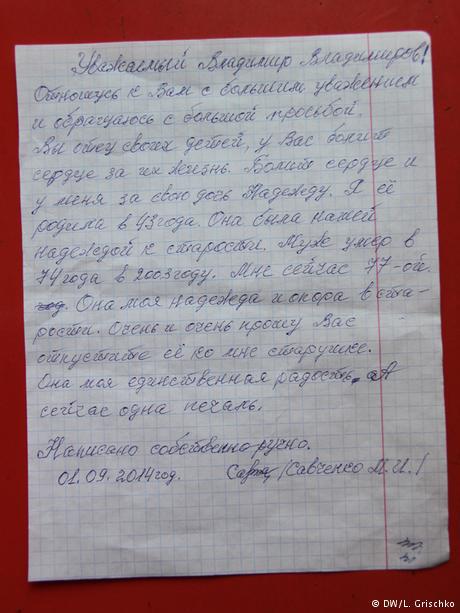 Уважаемый Владимир Владимиров!
Отношусь к Вам с большим уважением
и обращаюсь с большой просьбой.
Вы отец своих детей, у Вас болит
сердце за их жизнь. Болит сердце и
у меня за свою дочь Надежду. Я её
родила в 43 года. Она была нашей
надеждой к старости. Муж умер в
74 года в 2003 году. Мне сейчас 77-ой
год. Она моя надежда и опора в ста-
рости. Очень и очень прошу Вас
отпустите её ко мне старушке.
Она моя единственная радость. А
сейчас одна печаль.
Написано собственно ручно.
01.09.2014 год. /Савченко М.И./
© DW/L. Grischko